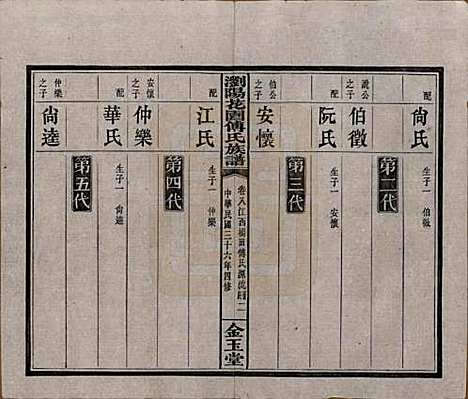 配 尚氏 生子一 伯徵
第二代
說公之子 伯徵
配 阮氏 生子一 安懷
第三代
伯公之子 安懷
瀏陽花園傅氏族譜
卷八江西樹田傅氏源流圖二
中華民國三十六年四修
金玉堂
配 江氏 生子一 仲樂
第四代
安懷之子 仲樂
配 華氏 生子一 尙達
第五代
仲樂之子 尙達